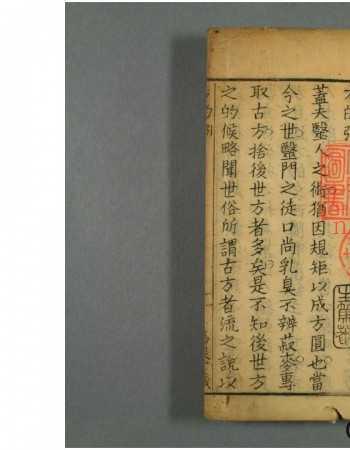 方的
蓋夫毉人之術猶因規矩以成方圓也當
今之世毉門之徒口尚乳臭不辨菽麥專
取古方捨後世方者多矣是不知後世方
之的候略聞世俗所謂古方者流之說以